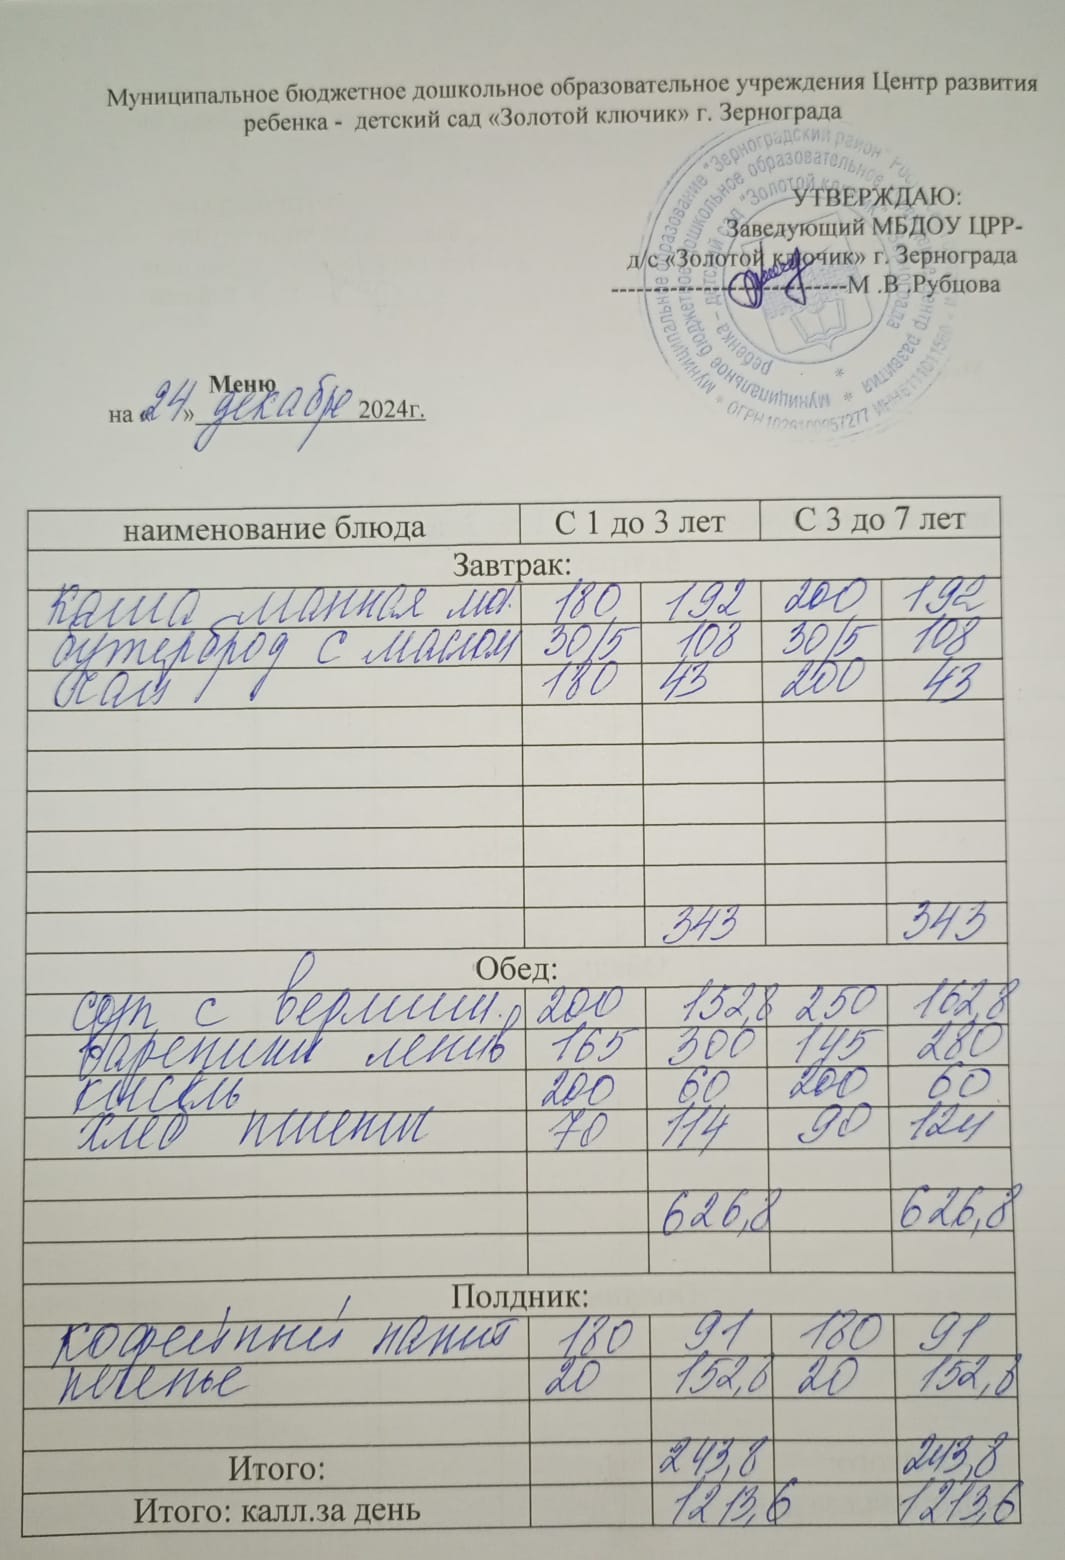 Муниципальное бюджетное дошкольное образовательное учреждения Центр развития
ребенка - детский сад «Золотой ключик» г. Зернограда
УТВЕРЖДАЮ:
Заведующий МБДОУ ЦРР-
д/с «Золотой ключик» г. Зернограда
---------------------------М .В .Рубцова
Меню
на «24» декабря 2024г.
наименование блюда С 1 до 3 лет С 3 до 7 лет
Завтрак:
каша манная мол. 180 192 200 192
бутерброд с маслом 30/5 108 30/5 108
180 43 200 43
343 343
Обед:
суп с вермиш. 200 152,8 250 162,8
вареники ленив 165 300 145 280
кисель 200 60 200 60
хлеб пшенич 70 114 90 124
626,8 626,8
Полдник:
кофейный напит 180 91 180 91
печенье 20 152,8 20 152,8
Итого: 243,8 243,8
Итого: калл.за день 1213,6 1213,6